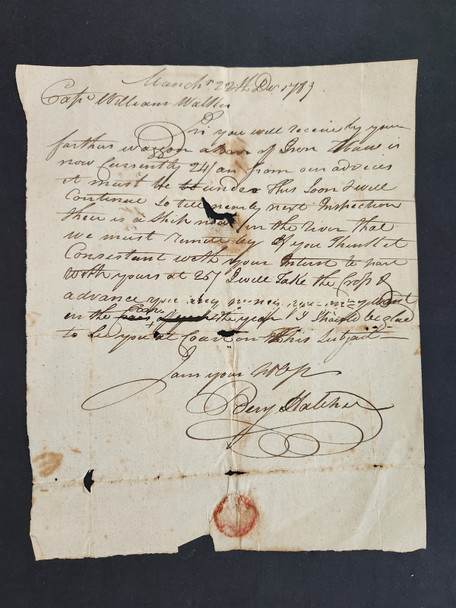 Manchr 22th Decr 1789
Capt William Walker
Sir you will receive by your
farther waggon a
of Iron
is
now Currently 24/ an from our advices
it must be under this soon I will
Continue so till nearly next Inspection
there is a Ship now in the River that
we must
by If you think it
Consistant with your Intrest to part
With yours at 25/ I will Take the Crop &
advance you any money you may want
in the
the year I Should be glad
to See you at
on this Subject
I am your
Benj Hatcher